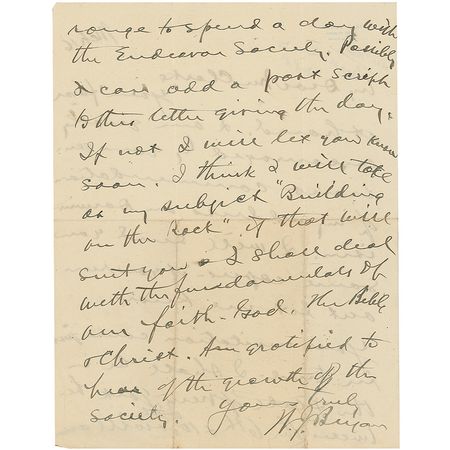 range to spend a day with
the Endeavor Society. Possibly
I can add a post script
to this letter giving the day.
If not I will let you know
soon. I think I will take
as my subject "Building
on the Rock" if that will
suit you & I shall deal
with the fundamentals of
our faith - God, the Bible
& Christ. Am gratified to
hear of the growth of the
Society.
Yours truly
W. J. Bryan